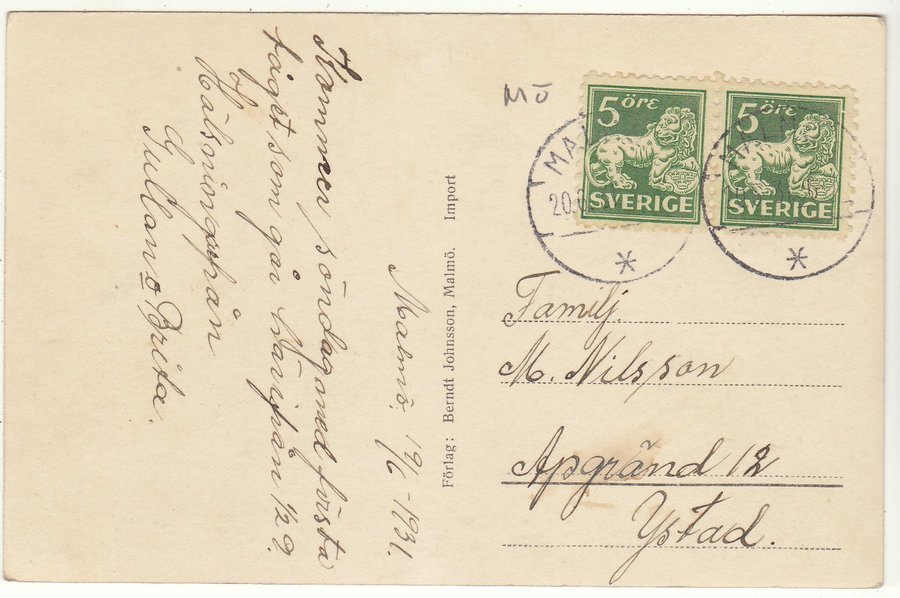 Malmö, 19/6 - 1931.
Kommer söndag med första
tågt som går härifrån 1/2 9.
Hälsningar från
Gullan o Brita.
Förlag: Berndt Johnsson, Malmö. Import
Mö
5 öre
SVERIGE
5 öre
SVERIGE
MAL
20.6
MALM
Familj.
M. Nilsson
Apgränd 12
Ystad.